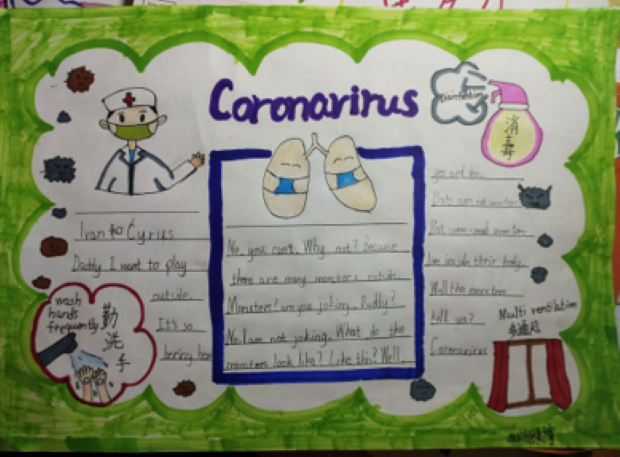 Coronavirus
消
毒
Ivan和Cyrus
Daddy I want to play
outside.
It's so
boring here
wash
hands
frequently
勤
洗
手
No, you can't. Why not? Because
there are many monsters outside.
Monsters? are you joking, Daddy?
No, I am not joking. What do the
monsters look like? Like this? Well,
yes and no.
Bats are not monsters
live inside their body.
Will the monsters
kill us?
Coronavirus
Multi ventilation
多通风